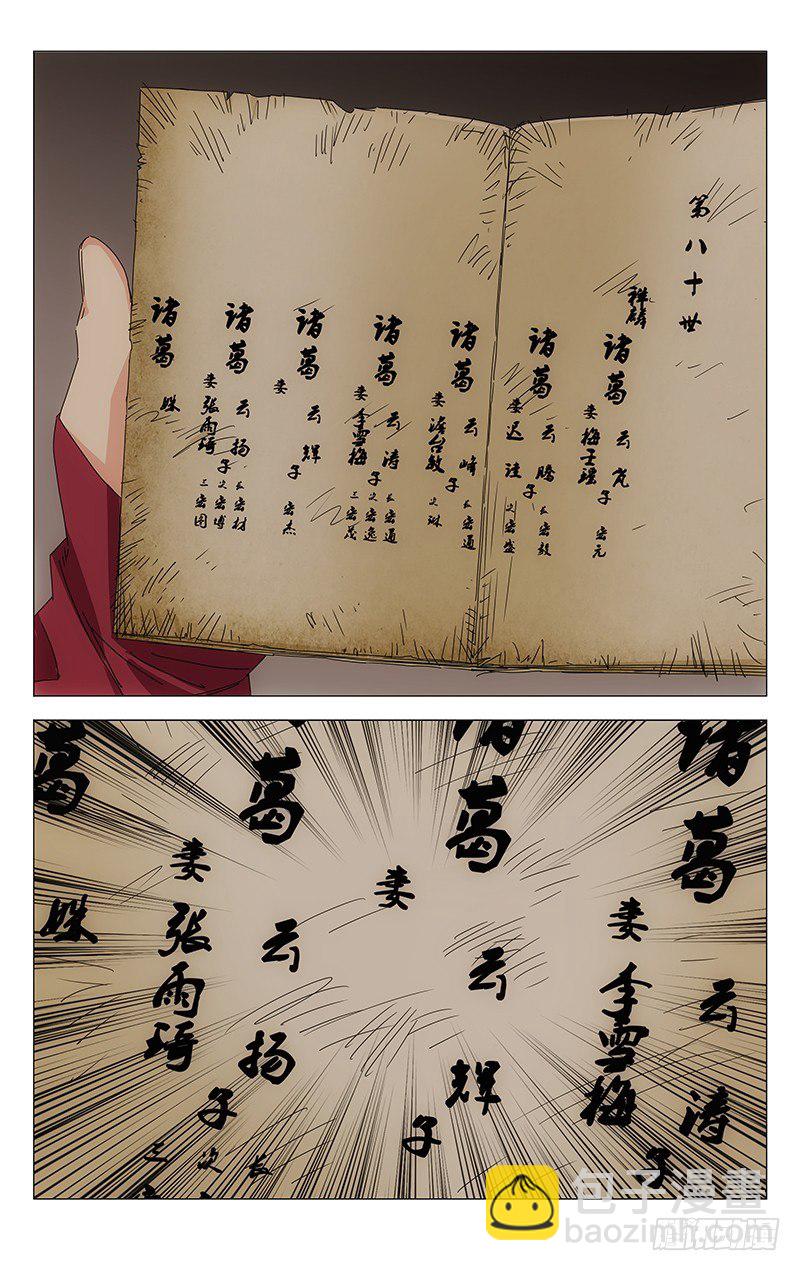 第八十世
诸葛云岚
祥麟
妻梅玉瑶
子
宏元
诸葛云腾
妻迟
子
长宏毅
次宏盛
诸葛云峰
妻澹台敏
子
长宏通
次琳
诸葛云涛
妻李雪梅
子
长宏通
次宏逸
三宏茂
诸葛云辉
妻
子
宏杰
诸葛云扬
妻张雨琦
子
长宏材
次宏博
三宏图
诸葛姝
诸葛云涛
妻李雪梅
子
葛云辉
妻
子
葛云扬
妻张雨琦
子
长
次
三
葛姝
包子漫畫
baozimh.com